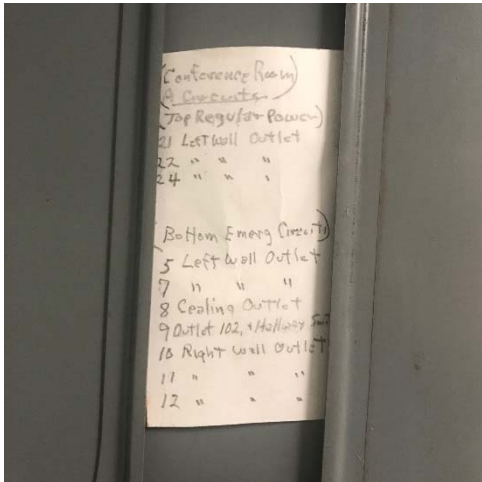 (Conference Room)
A Circuits
(Top Regular Power)
21 Left Wall Outlet
22 " " "
24 " " "
(Bottom Emerg Circuits)
5 Left Wall Outlet
7 " " "
8 Cealing Outlet
9 Outlet 102, & Hallway
10 Right Wall Outlet
11 " " "
12 " " "